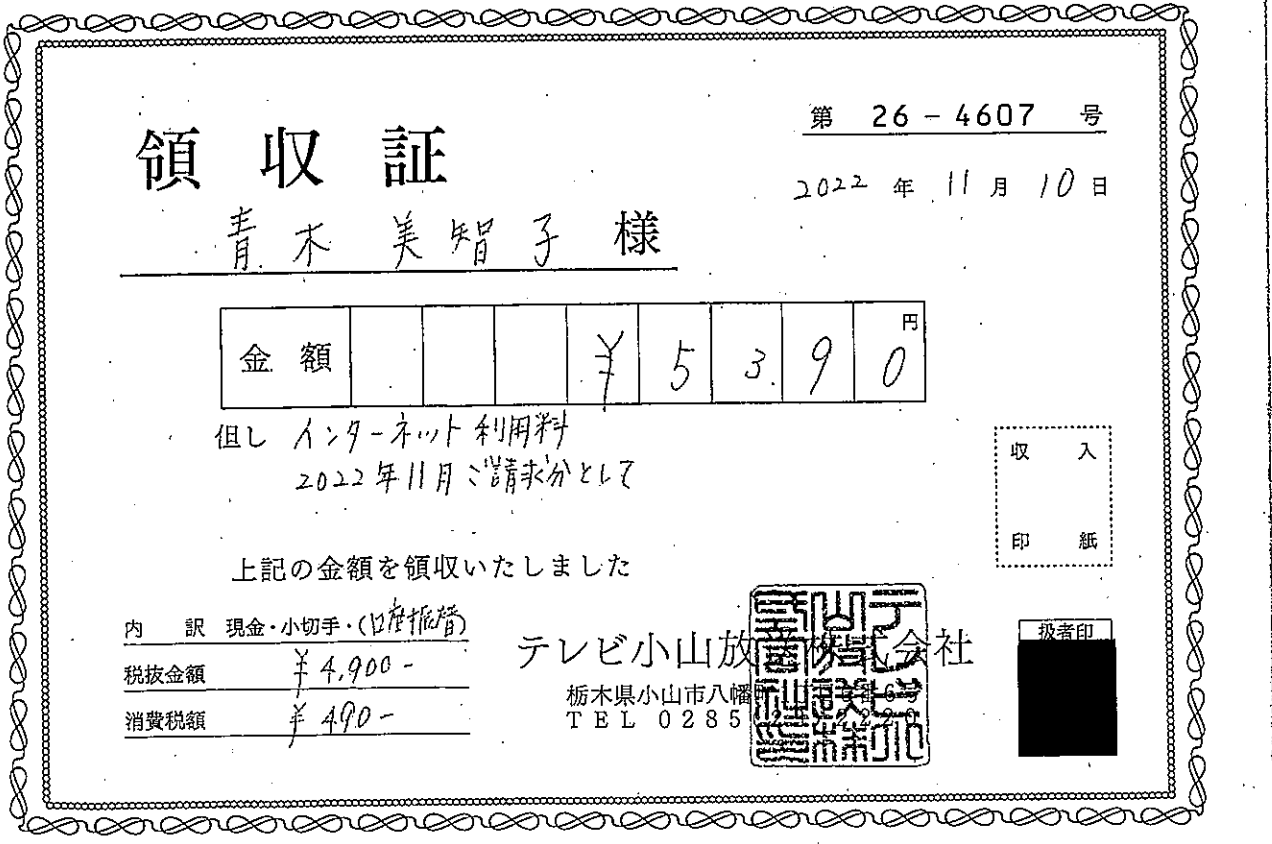 領収証
第 26-4607 号
2022 年 11 月 10 日
青木 美智子 様
金額 ¥ 5 3 9 0 円
但し インターネット利用料
2022年11月ご請求分として
収入
印紙
上記の金額を領収いたしました
内 訳 現金・小切手・(口座振替)
税抜金額 ¥4,900-
消費税額 ¥490-
テレビ小山放送株式会社
栃木県小山市八幡
TEL 0285
扱者印